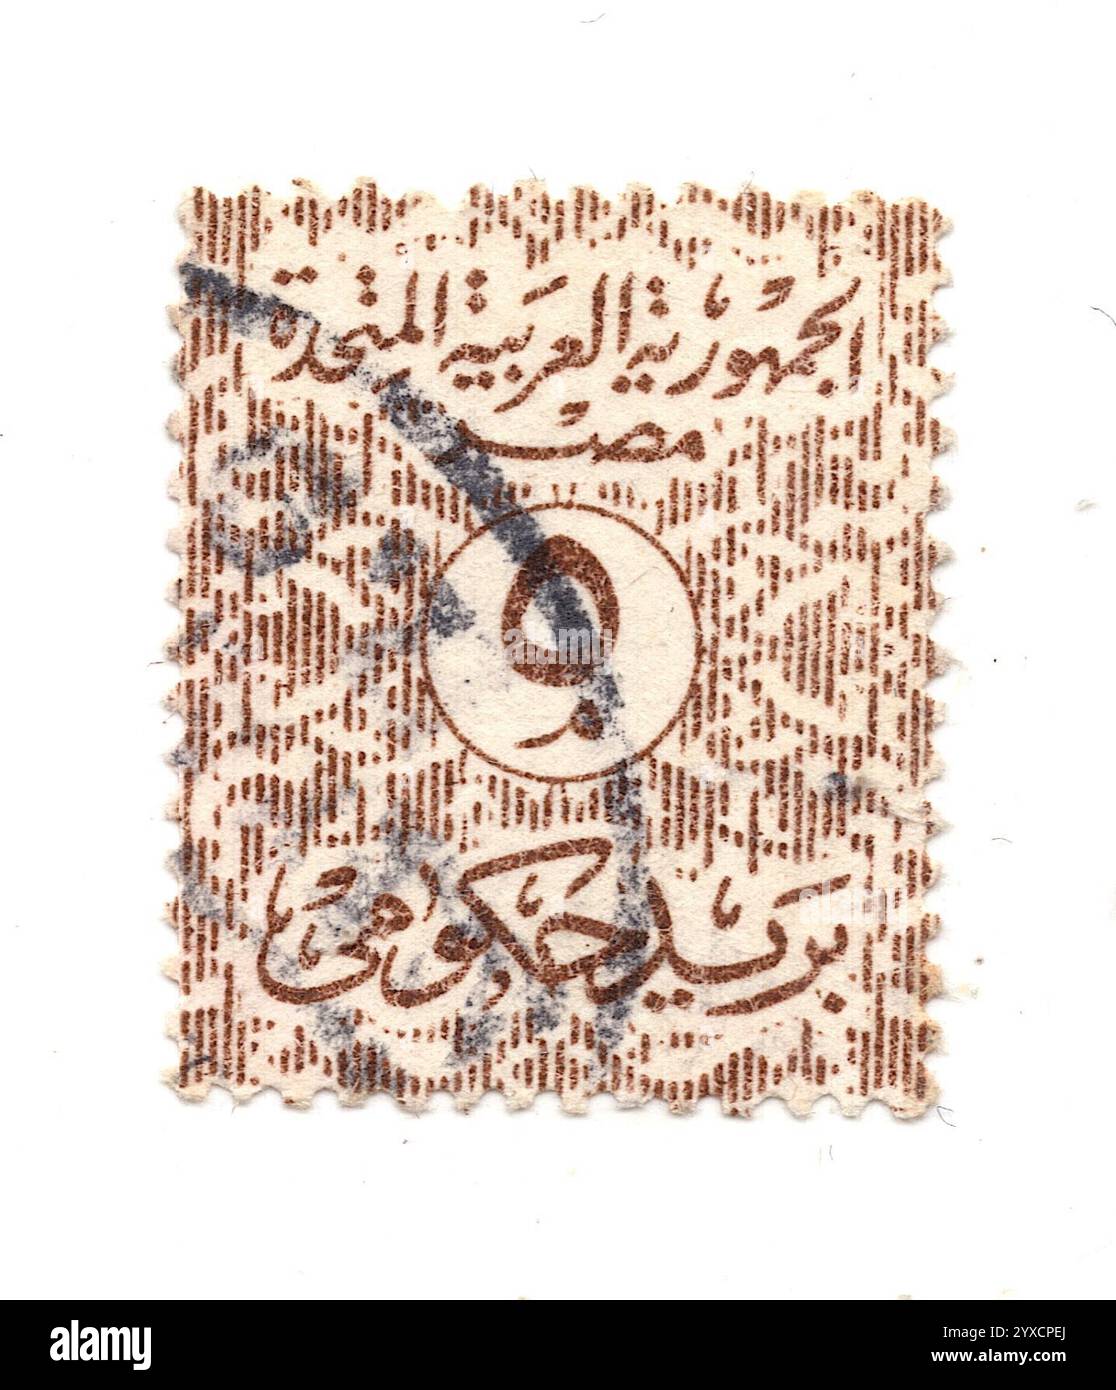 الجمهورية العربية المتحدة
مصر
٥
بريد حكومى
alamy
Image ID: 2YXCPEJ
www.alamy.com